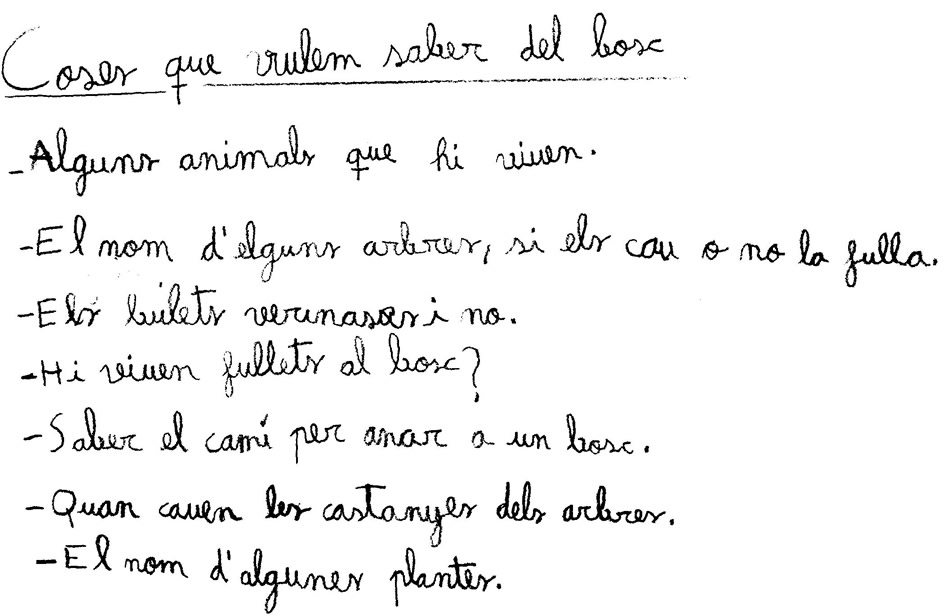 Coses que vulem saber del bosc
-Alguns animals que hi viuen.
-El nom d'elguns arbres, si els cau o no la fulla.
-Els builets verinasos i no.
-Hi viuen fullets al bosc?
-Saber el camí per anar a un bosc.
-Quan cauen les castanyes dels arbres.
-El nom d'algunes plantes.